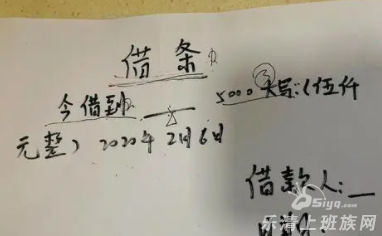 借条
今借到 5000 大写:(伍仟
元整) 2020年2月6日
借款人:
5iyq.com
乐清上班族网